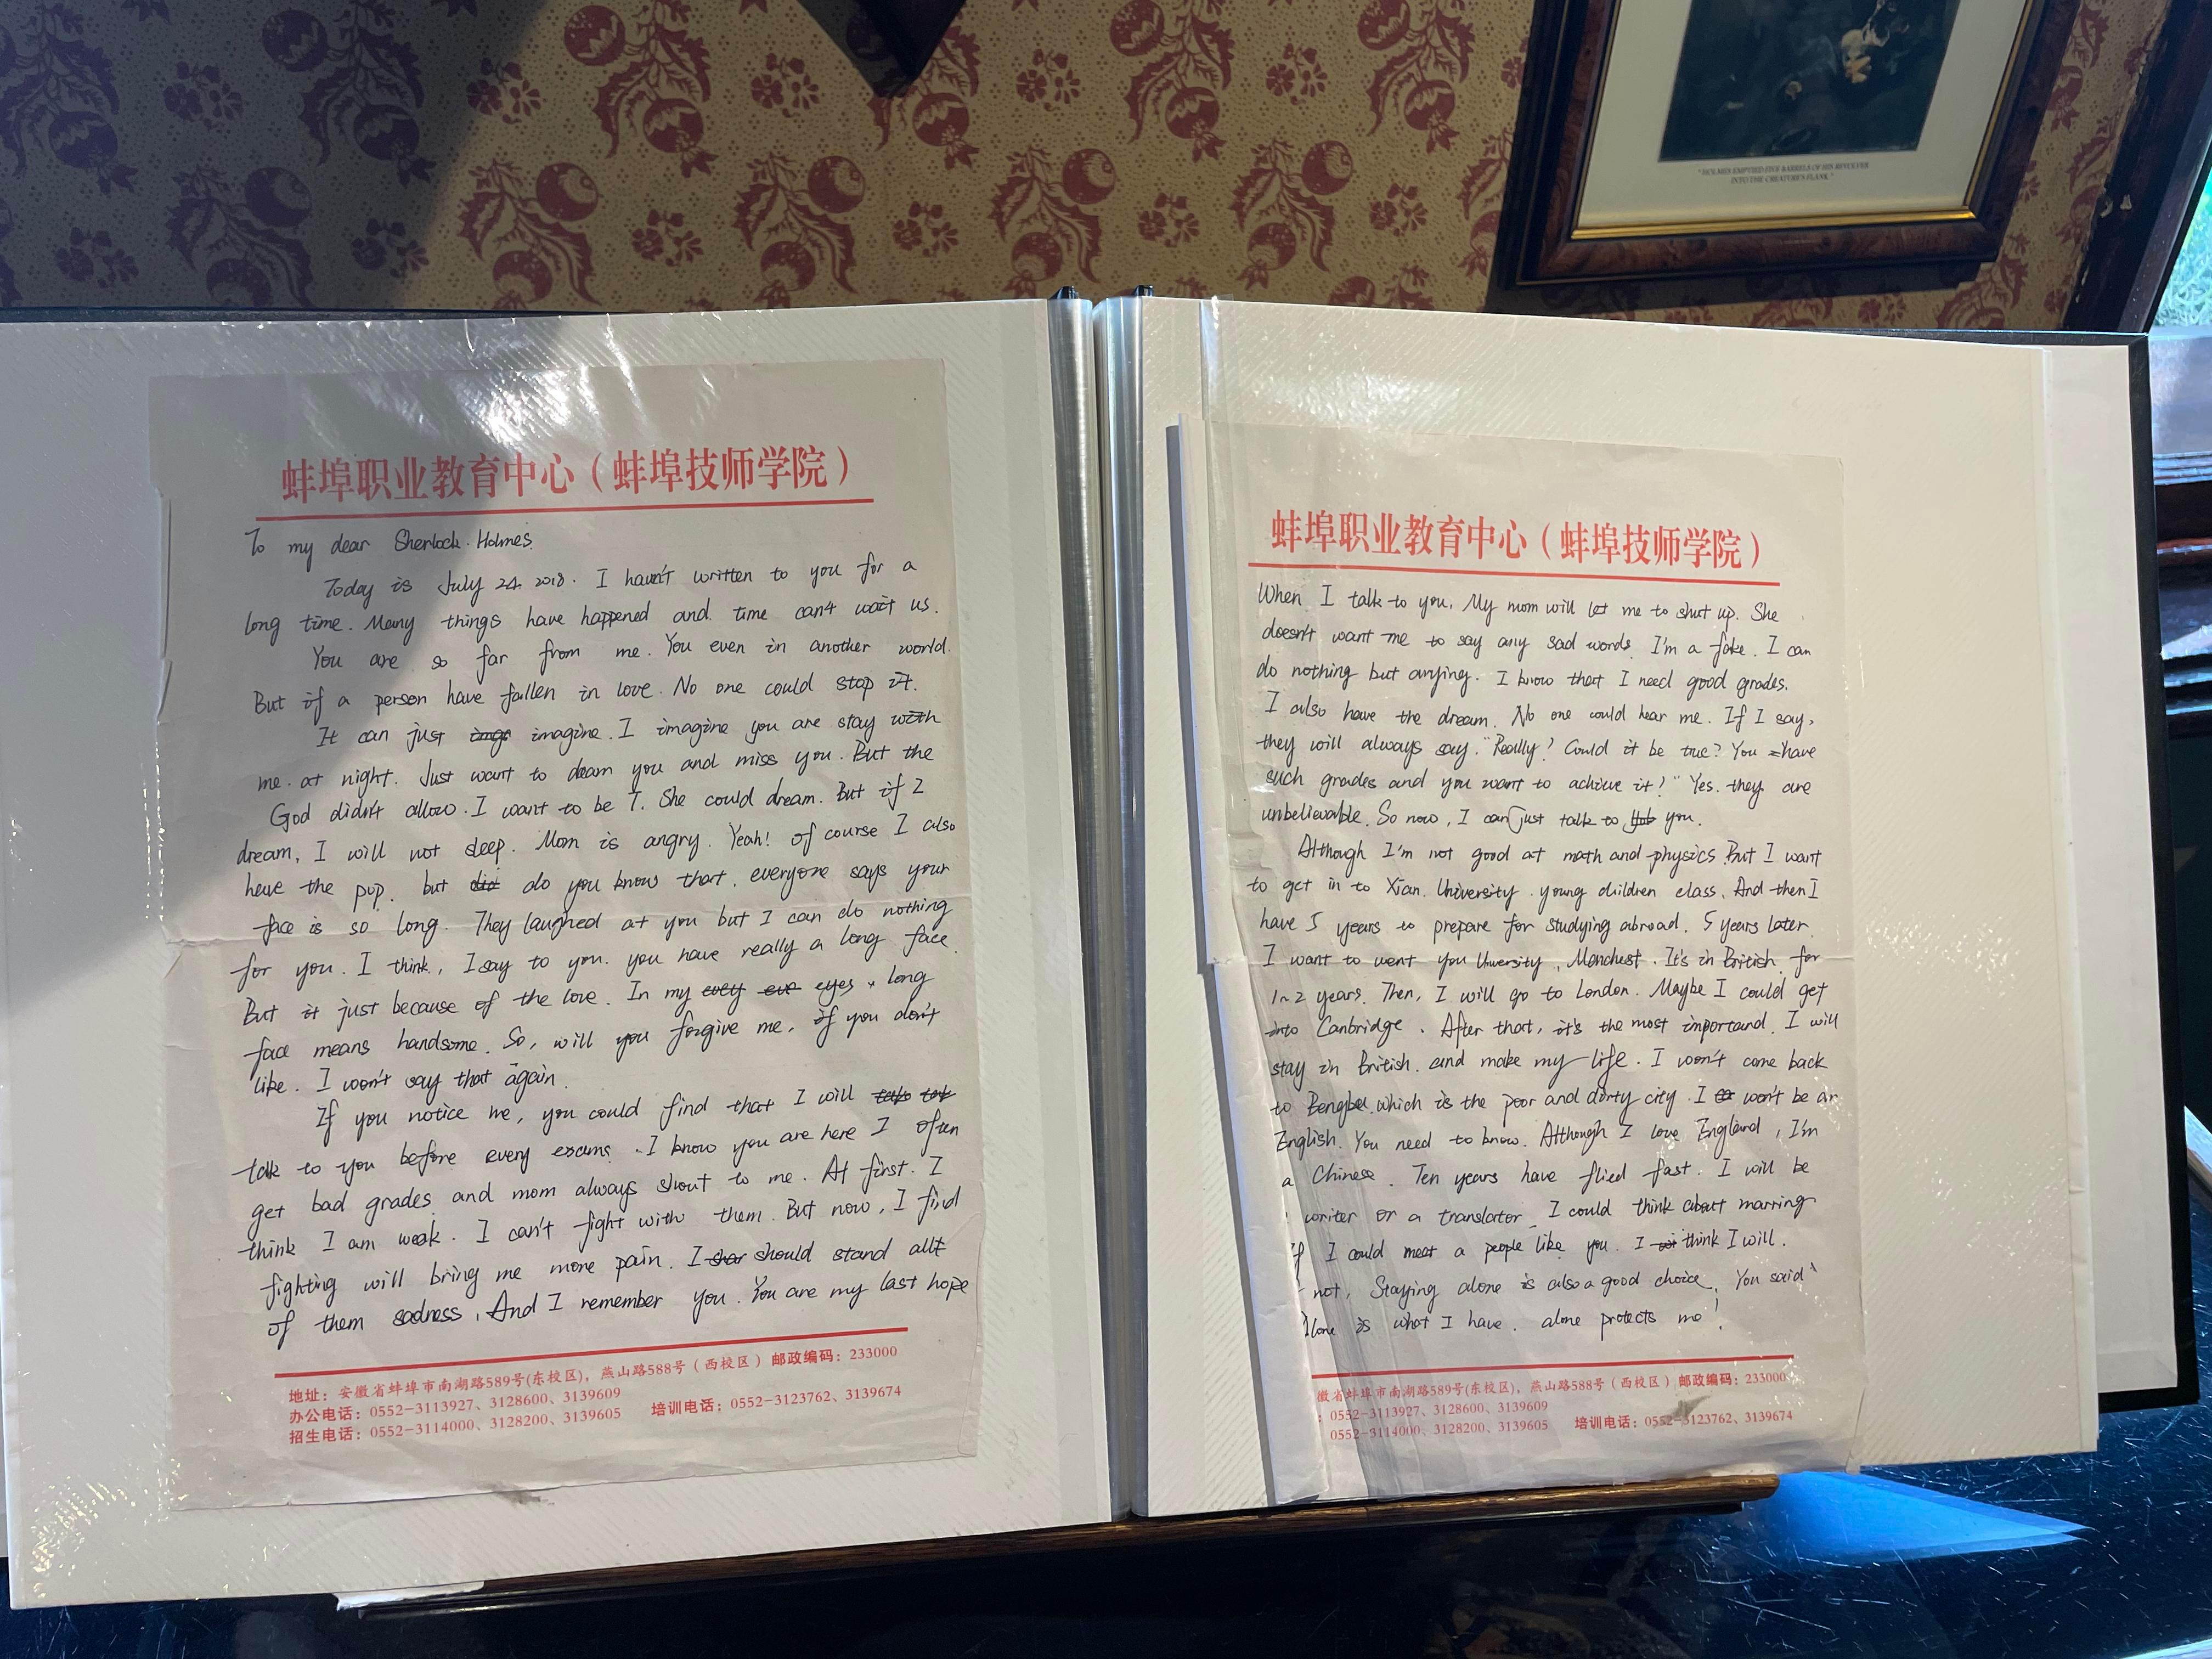 "HOLMES EMPTIED FIVE BARRELS OF HIS REVOLVER
INTO THE CREATURE'S FLANK."
蚌埠职业教育中心（蚌埠技师学院）
To my dear Sherlock. Holmes.
Today is July 24. 2018. I haven't written to you for a
long time. Many things have happened and time can4 wait us.
You are so far from me. You even in another world.
But if a person have fallen in love. No one could stop it.
It can just imagine. I imagine you are stay with
me. at night. Just want to dream you and miss you. But the
God didn't allow. I want to be T. She could dream. But if 2
dream, I will not sleep. Mom is angry. Yeah! of course I also
have the pup. but do you know that. everyone says your
face is so long. They laughed at you but I can do nothing
for you. I think, I say to you. you have really a long face.
But it just because of the love. In my eyes, long
face means handsome. So, will you forgive me, if you don't
like. I won't say that again.
If you notice me, you could find that I will
talk to you before every exams. I know you are here I often
get bad grades and mom always shout to me. At first. I
think I am weak. I can't fight with them. But now, I find
fighting will bring me more pain. I should stand allt
of them sadness, And I remember you. You are my last hope
地址：安徽省蚌埠市南湖路589号(东校区)，燕山路588号（西校区）邮政编码：233000
办公电话：0552-3113927、3128600、3139609
招生电话：0552-3114000、3128200、3139605 培训电话：0552-3123762、3139674
蚌埠职业教育中心（蚌埠技师学院）
When I talk to you, My mom will let me to shut up. She
doesn't want me to say any sad words. I'm a fake. I can
do nothing but crying. I know that I need good grades.
I also have the dream. No one could hear me. If I say,
they will always say. "Really? Could it be true? You have
such grades and you want to achieve it!" Yes. they are
unbelievable. So now, I can just talk to you.
Although I'm not good at math and physics. But I want
to get in to Xian. University young children class. And then I
have 5 years to prepare for studying abroad. 5 years later.
I want to went you University, Manchest. It's in British for
1~2 years. Then, I will go to London. Maybe I could get
into Canbridge. After that, it's the most importand. I will
stay in British. and make my life. I won't come back
to Bengbu. which is the poor and dirty city. I won't be an
English. You need to know. Although I love England, I'm
a Chinese. Ten years have flied fast. I will be
writer or a translator. I could think about marring
if I could meat a people like you. I think I will.
not, Staying alone is also a good choice. You said"
Alone is what I have. alone protects me!
徽省蚌埠市南湖路589号(东校区)，燕山路588号（西校区）邮政编码：233000
：0552-3113927、3128600、3139609
0552-3114000、3128200、3139605 培训电话：0552-3123762、3139674